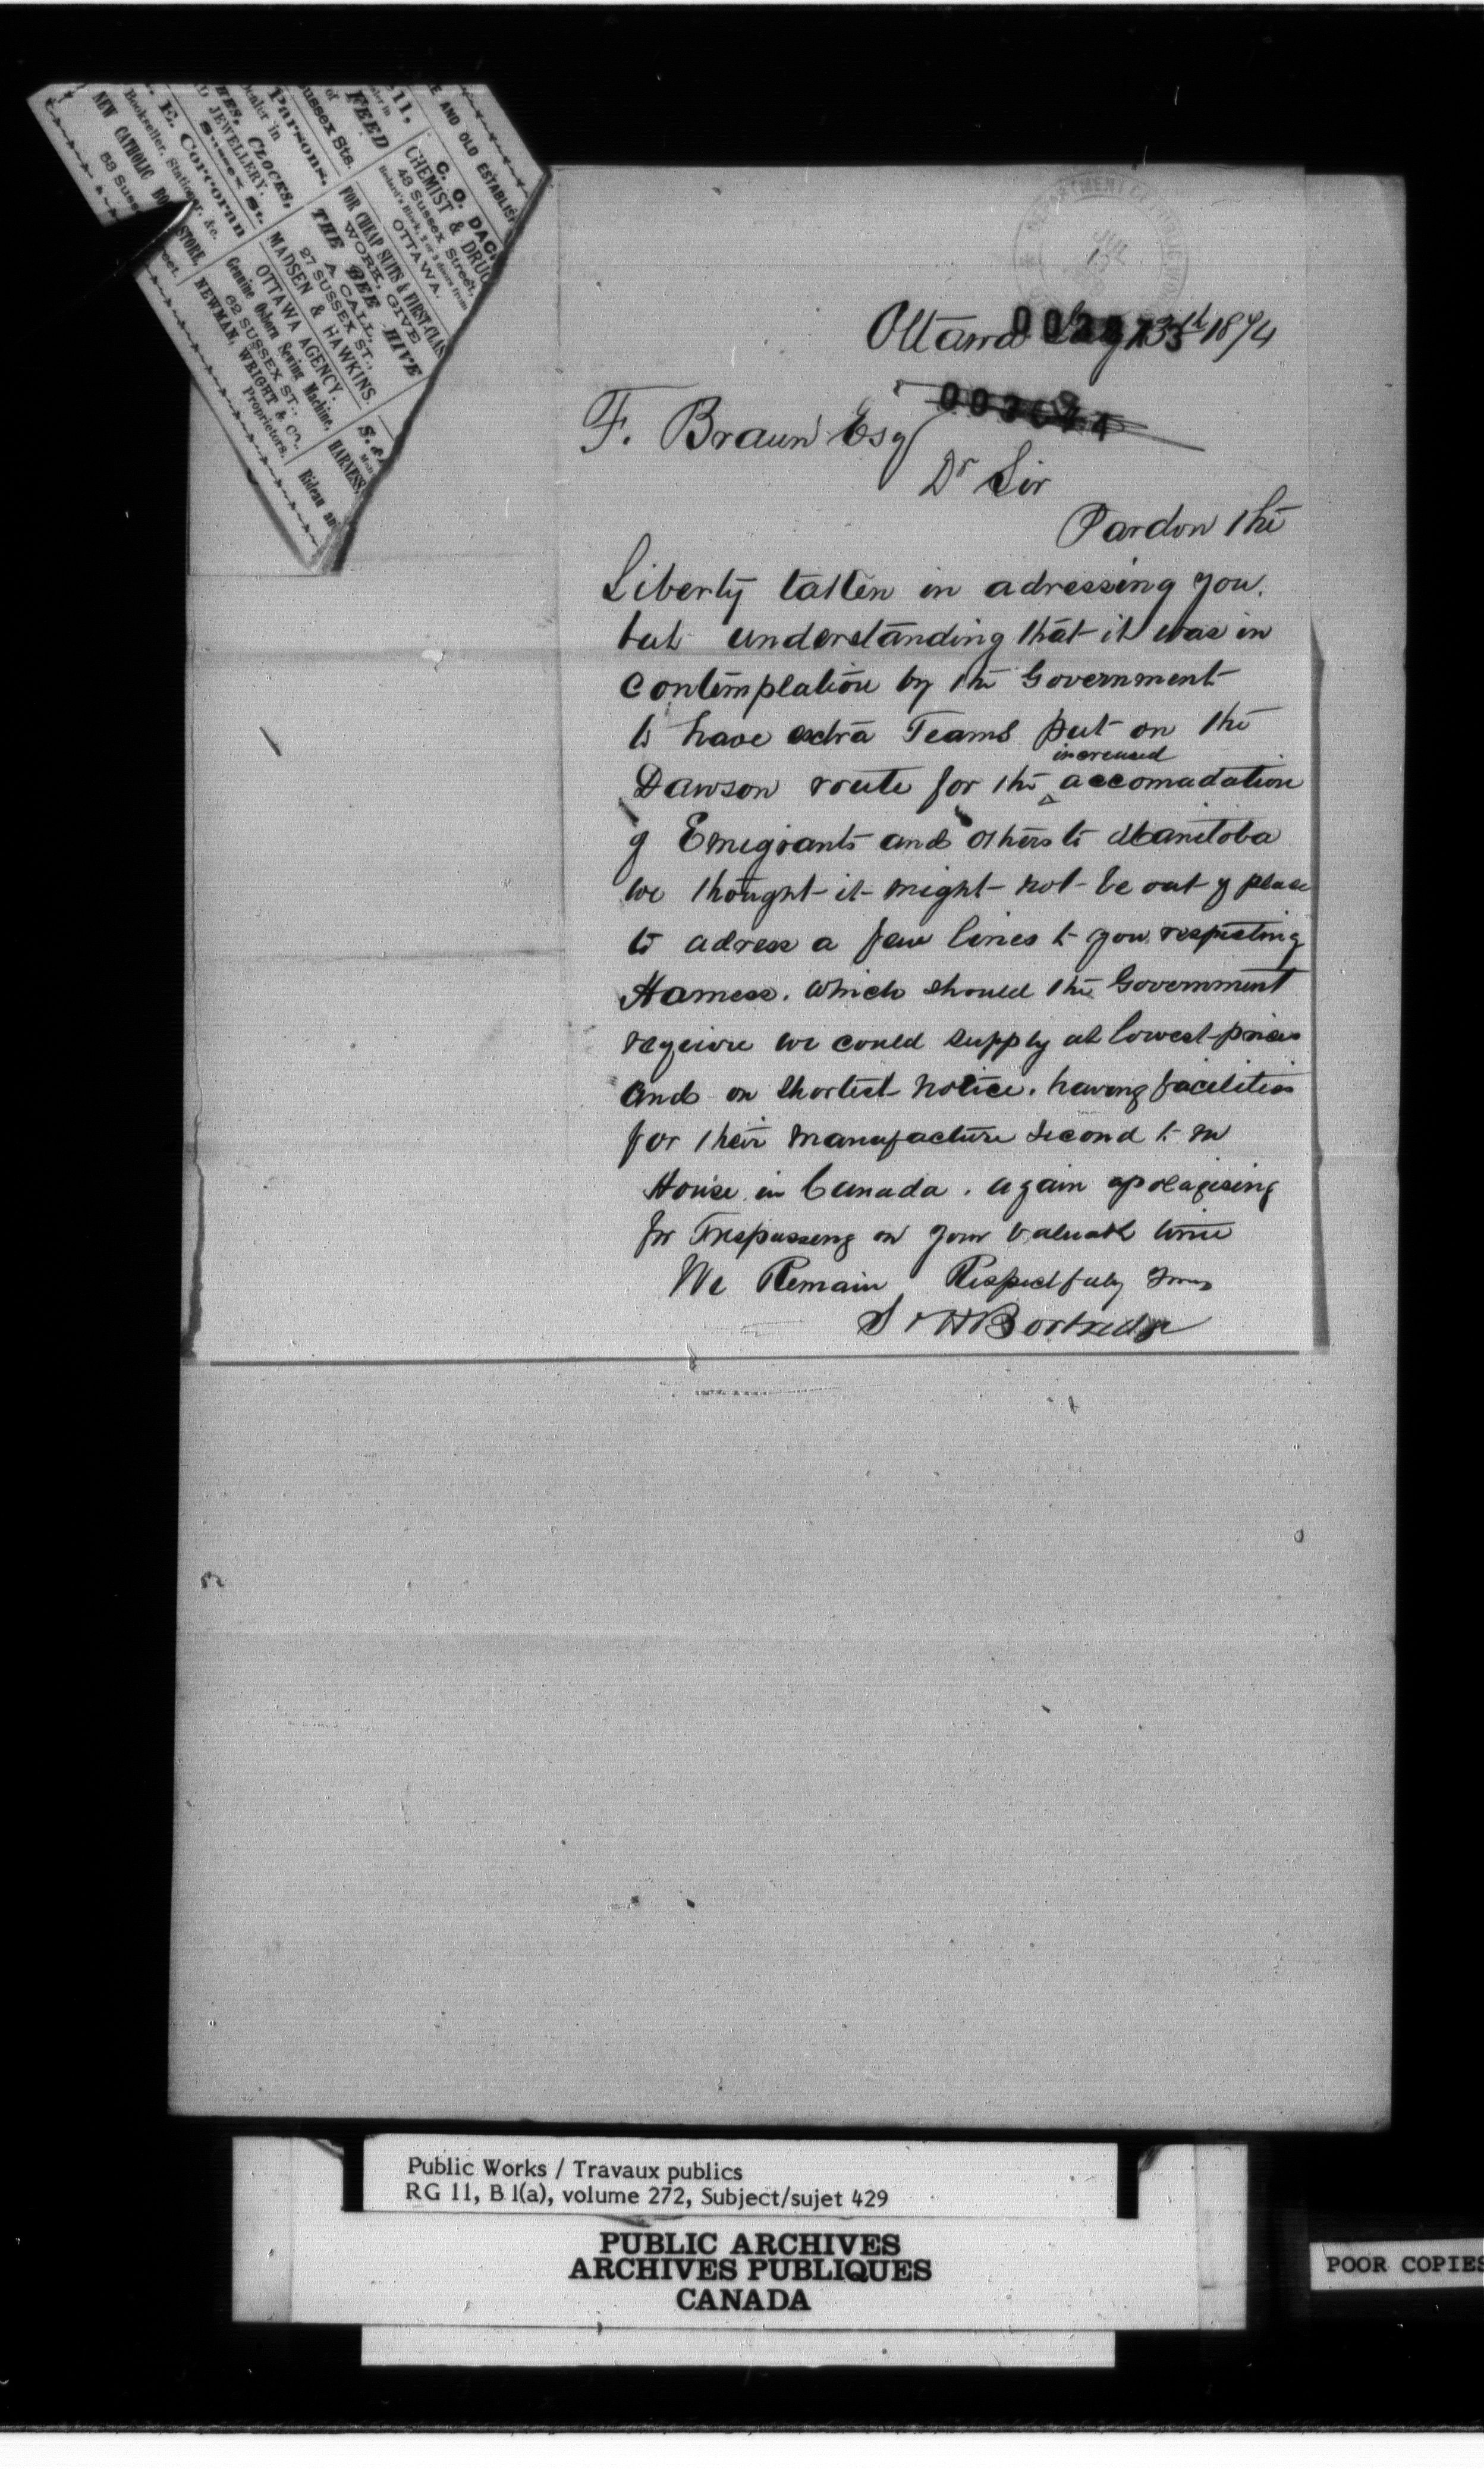 Ottawa 13th 1874
F. Braun Esq
Dr Sir
Pardon the
Liberty taken in adressing you.
but understanding that it was in
contemplation by the Government
to have extra Teams put on the
increased
Dawson route for the accomadation
of Emigrants and others to Manitoba
we thought it might not be out of place
to adress a few lines to you respecting
Harness. which should the Government
require we could supply at lowest prices
and on shortest notice. having facilities
for their manufacture second to no
House in Canada. again apologising
for Trespassing on your valuable time
We Remain Respectfuly Yours
S & H Borbridge
E AND OLD ESTABLIS
C. O. DAC
CHEMIST & DRUG
48 Sussex Street,
OTTAWA.
11,
FEED
of
ussex Sts.
FOR CHEAP SUITS & FIRST-CLAS
WORK, GIVE
THE BEE HIVE
A CALL,
27 SUSSEX ST.,
Parsons,
ealer in
HES, CLOCKS,
JEWELLERY.
Sussex St.
MADSEN & HAWKINS.
OTTAWA AGENCY.
Genuine Osborn Sewing Machine,
62 SUSSEX ST.:
NEWMAN, WRIGHT & Co.
Proprietors.
E. Corcoran
Bookseller, Stationer, &c.
NEW CATHOLIC BO STORE,
58 Suss reet.
HARNESS,
Rideau an
Public Works / Travaux publics
RG 11, B 1(a), volume 272, Subject/sujet 429
PUBLIC ARCHIVES
ARCHIVES PUBLIQUES
CANADA
POOR COPIES